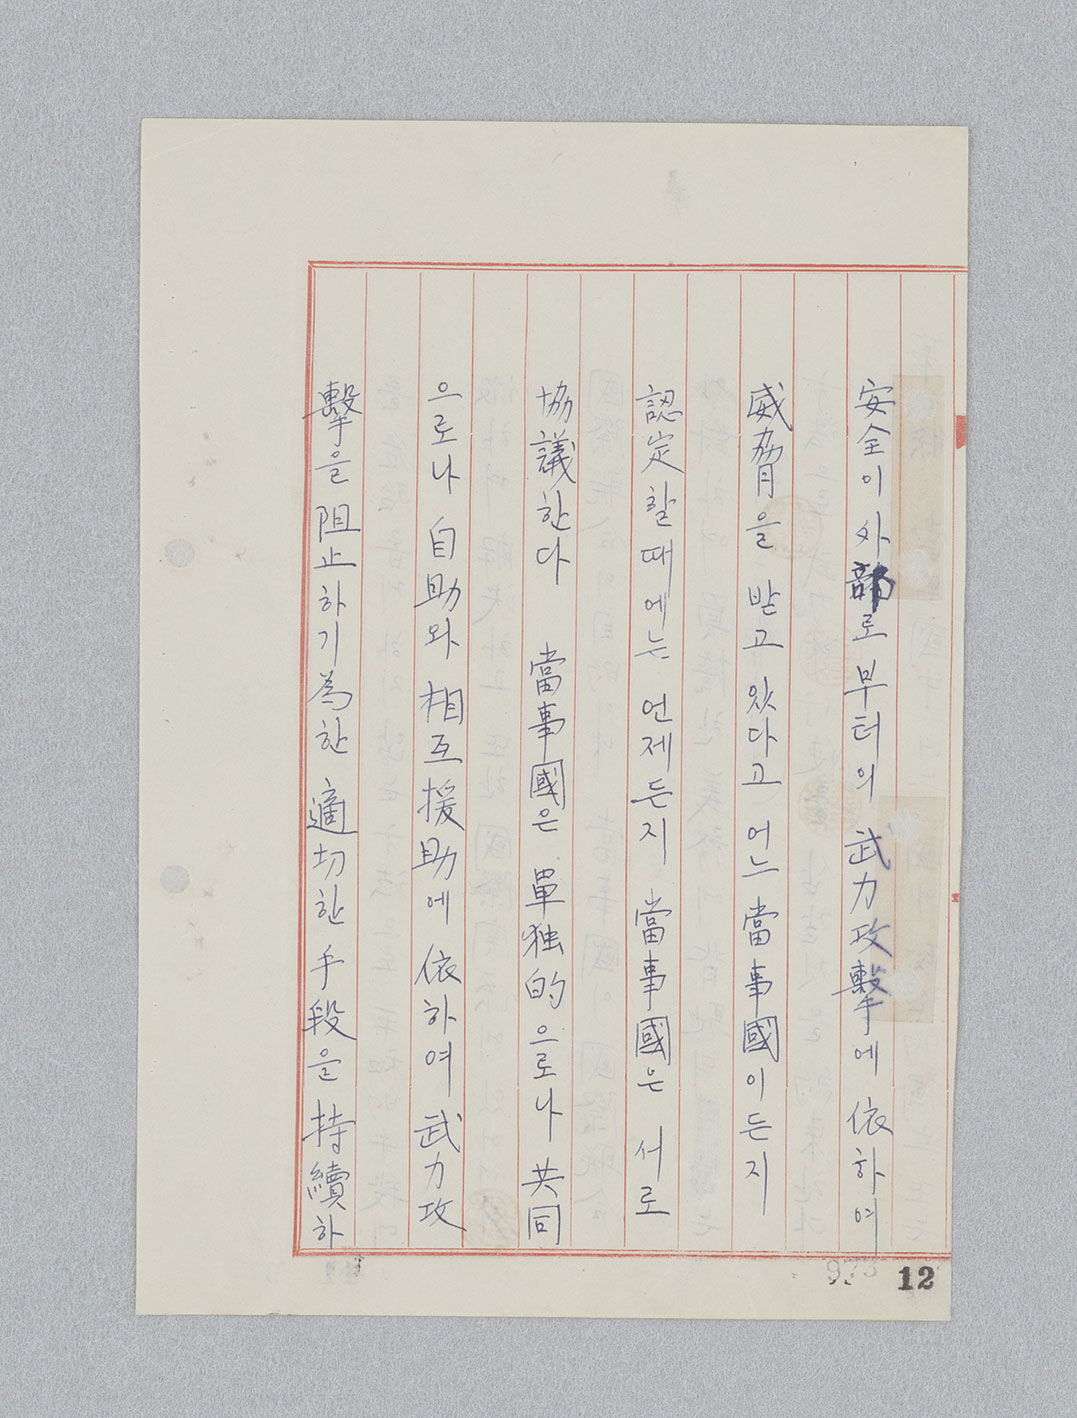 安全이 外部로 부터의 武力攻擊에 依하여
威脅을 받고 있다고 어느 當事國이든지
認定할때에는 언제든지 當事國은 서로
協議한다 當事國은 單独的으로나 共同
으로나 自助와 相互援助에 依하여 武力攻
擊을 阻止하기爲한 適切한 手段을 持續하
12